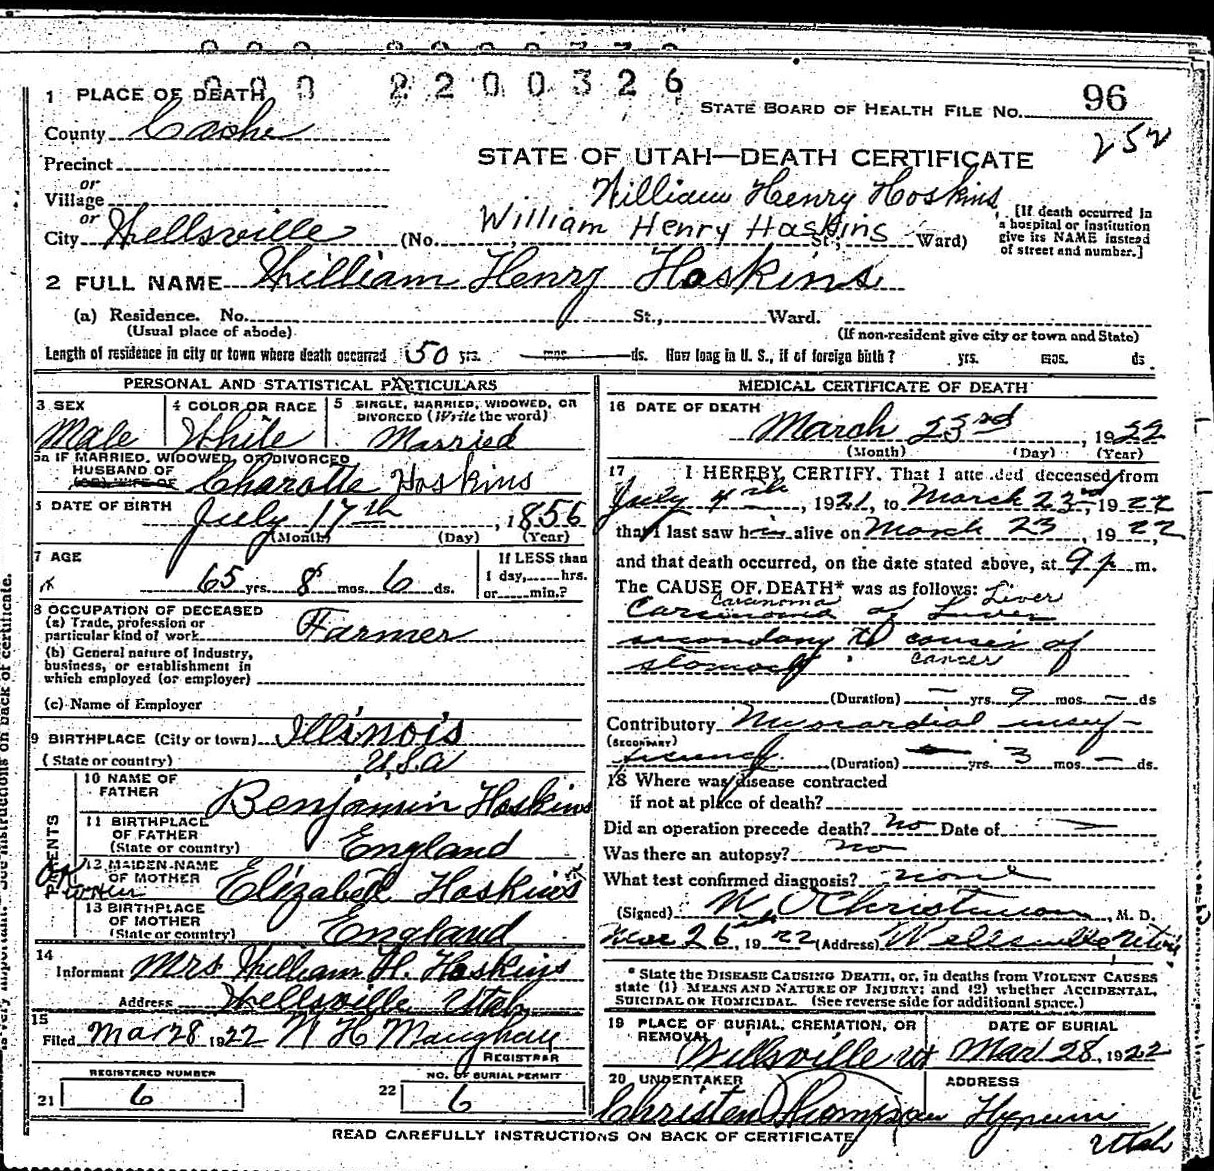 000 2200326
1 PLACE OF DEATH
STATE BOARD OF HEALTH FILE No. 96
County Cache
252
Precinct
STATE OF UTAH—DEATH CERTIFICATE
or
Village
William Henry Hoskins
or
City Wellsville (No. William Henry Hoskins St.; Ward)
[If death occurred in a hospital or institution give its NAME instead of street and number.]
2 FULL NAME William Henry Hoskins
(a) Residence. No. St., Ward.
(Usual place of abode) (If non-resident give city or town and State)
Length of residence in city or town where death occurred 50 yrs. mos. ds. How long in U. S., if of foreign birth? yrs. mos. ds
PERSONAL AND STATISTICAL PARTICULARS
3 SEX Male
4 COLOR OR RACE White
5 SINGLE, MARRIED, WIDOWED, OR DIVORCED (Write the word) Married
5a IF MARRIED, WIDOWED, OR DIVORCED
HUSBAND OF
(OR) WIFE OF Charotte Hoskins
6 DATE OF BIRTH July 17th, 1856
(Month) (Day) (Year)
7 AGE
65 yrs. 8 mos. 6 ds.
If LESS than
1 day, hrs.
or min.?
8 OCCUPATION OF DECEASED
(a) Trade, profession or
particular kind of work Farmer
(b) General nature of Industry,
business, or establishment in
which employed (or employer)
(c) Name of Employer
9 BIRTHPLACE (City or town) Illinois
(State or country) U.S.A
PARENTS
10 NAME OF
FATHER Benjamin Hoskins
11 BIRTHPLACE
OF FATHER
(State or country) England
12 MAIDEN NAME
OF MOTHER Elizabeth Hoskins
13 BIRTHPLACE
OF MOTHER
(State or country) England
14
Informant Mrs William H. Hoskins
Address Wellsville Utah
15
Filed Mar 28 1922 N H Maughan
REGISTRAR
REGISTERED NUMBER
21 6
NO. OF BURIAL PERMIT
22 6
MEDICAL CERTIFICATE OF DEATH
16 DATE OF DEATH
March 23rd, 1922
(Month) (Day) (Year)
17 I HEREBY CERTIFY, That I atte ded deceased from
July 4th, 1921, to March 23rd, 1922
that I last saw him alive on March 23, 1922,
and that death occurred, on the date stated above, at 9 p. m.
The CAUSE OF DEATH* was as follows: Liver
Caranoma
Carcinoma of Liver
secondary to cancer of
stomach cancer
(Duration) — yrs. 9 mos. — ds
Contributory Myocardial insuf-
(SECONDARY)
ficiency (Duration) — yrs. 3 mos. — ds.
18 Where was disease contracted
if not at place of death?
Did an operation precede death? no Date of
Was there an autopsy? no
What test confirmed diagnosis? none
(Signed) W. O Christenson, M. D.
Mar 26th, 1922 (Address) Wellsville Utah
* State the DISEASE CAUSING DEATH, or, in deaths from VIOLENT CAUSES
state (1) MEANS AND NATURE OF INJURY; and (2) whether ACCIDENTAL,
SUICIDAL OR HOMICIDAL. (See reverse side for additional space.)
19 PLACE OF BURIAL, CREMATION, OR
REMOVAL Willsville Ut
DATE OF BURIAL
Mar 28, 1922
20 UNDERTAKER
Christen Thompson
ADDRESS
Hyrum
Utah
READ CAREFULLY INSTRUCTIONS ON BACK OF CERTIFICATE